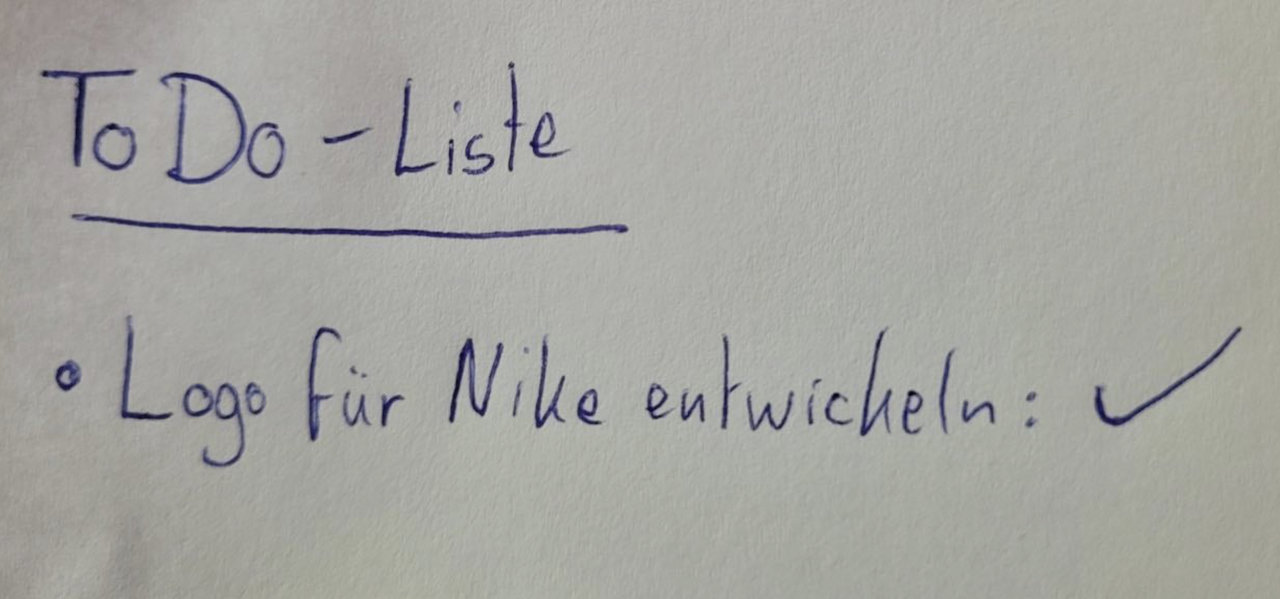 To Do - Liste
• Logo für Nike entwickeln: ✓